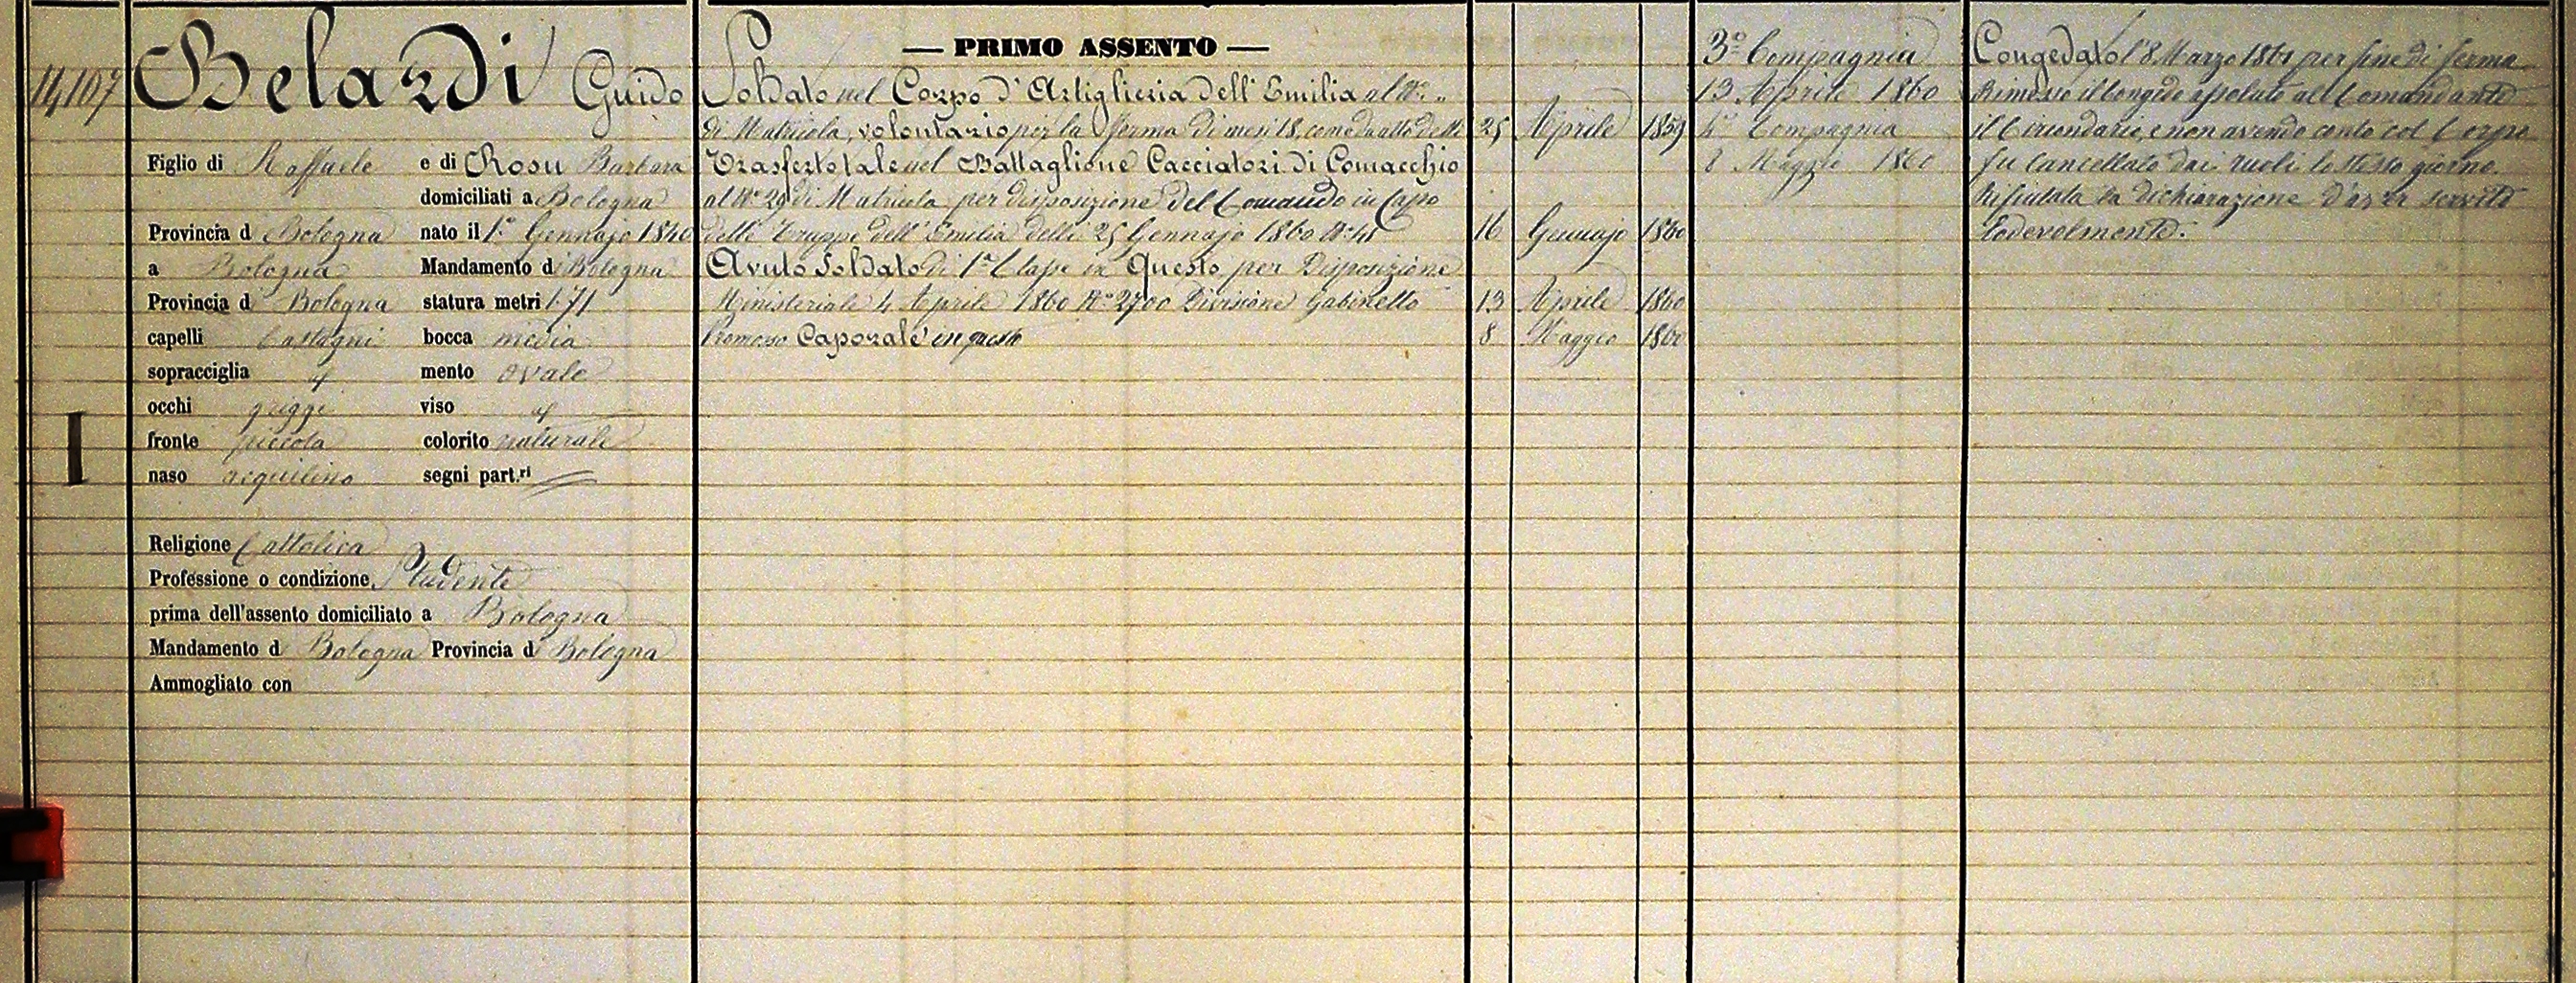 14107
Belardi Guido
Figlio di Raffaele e di Rosa Barbara
domiciliati a Bologna
Provincia d Bologna nato il 1º Gennajo 1840
a Bologna Mandamento di Bologna
Provincia di Bologna statura metri 1.71
capelli Castagni bocca media
sopracciglia id mento ovale
occhi griggi viso id
fronte piccola colorito naturale
naso acquilino segni part.ri
I
Religione Cattolica
Professione o condizione Studente
prima dell'assento domiciliato a Bologna
Mandamento di Bologna Provincia di Bologna
Ammogliato con
— PRIMO ASSENTO —
Soldato nel Corpo d'Artiglieria dell'Emilia al Nº "
di Matricola, volontario per la ferma di mesi 18, come da atto delli 25 Aprile 1859
Trasferto tale nel Battaglione Cacciatori di Comacchio
al Nº 29 di Matricola per disposizione del Comando in Capo
delle Truppe dell'Emilia delli 25 Gennajo 1860 Nº 45 16 Gennajo 1860
Avuto Soldato di 1ª Classe in Questo per Disposizione
Ministeriale 4 Aprile 1860 Nº 2700 Divisione Gabinetto 13 Aprile 1860
Promosso Caporale in questo 8 Maggio 1860
3ª Compagnia
13 Aprile 1860
4ª Compagnia
8 Maggio 1860
Congedato l'8 Marzo 1861 per fine di ferma
Rimesso il Congedo assoluto al Comandante
il Circondario, e non avendo conto col Corpo
fu cancellato dai ruoli lo stesso giorno.
Rifiutata la dichiarazione d'aver servito
lodevolmente.